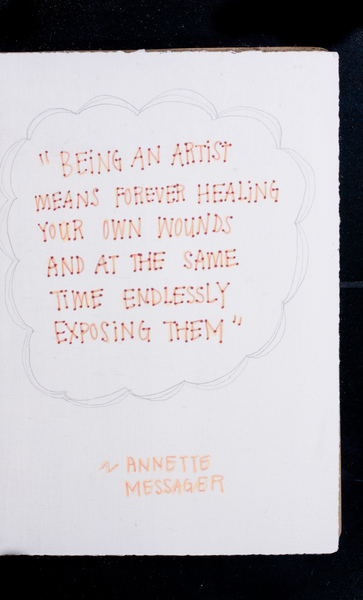 "BEiNG AN ARTiST
MEANS FOREVER HEALiNG
YOUR OWN WOUNDS
AND AT THE SAME
TiME ENDLESSLY
EXPOSiNG THEM"
~ ANNETTE
MESSAGER